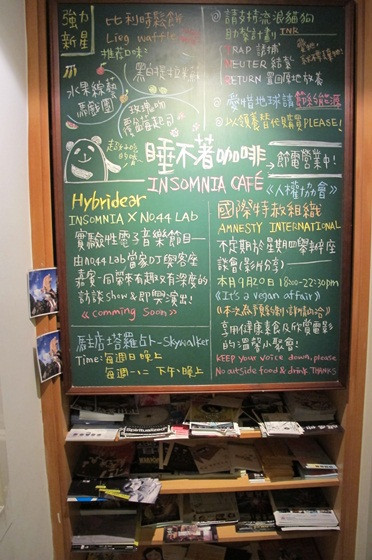 強力
新星
比利時鬆餅
Lieg waffle
推薦口味:
黑白提拉米蘇
水果綜藝
馬戲團
玫瑰咖
覆盆莓起司
請支持流浪貓狗
助紮計劃 TNR
TRAP 誘捕
NEUTER 結紮
RETURN 置回原地放養
愛惜地球請節約能源
以領養替代購買PLEASE!
睡不著咖啡
節電營業中!
INSOMNIA CAFÉ
Hybridear
INSOMNIA X NO.44 LAb
實驗性電子音樂節目—
由NO.44 LAb當家DJ與客座
嘉賓一同帶來有趣又有深度的
訪談show & 即興演出!
《Comming Soon》
《人權協會》
國際特赦組織
AMNESTY INTERNATIONAL
不定期於星期四舉辦座
談會(影州分享)
本月9月20日 18:00-22:30pm
《It's a vegan affair》
《本次為預約制, 詳情洽詢》
享用健康素食及欣賞電影
的溫馨小聚會!
KEEP your voice down, please
No outside food & drink. THANKS
塔羅占卜-Skywalker
Time: 每週日晚上
每週一、二 下午、晚上